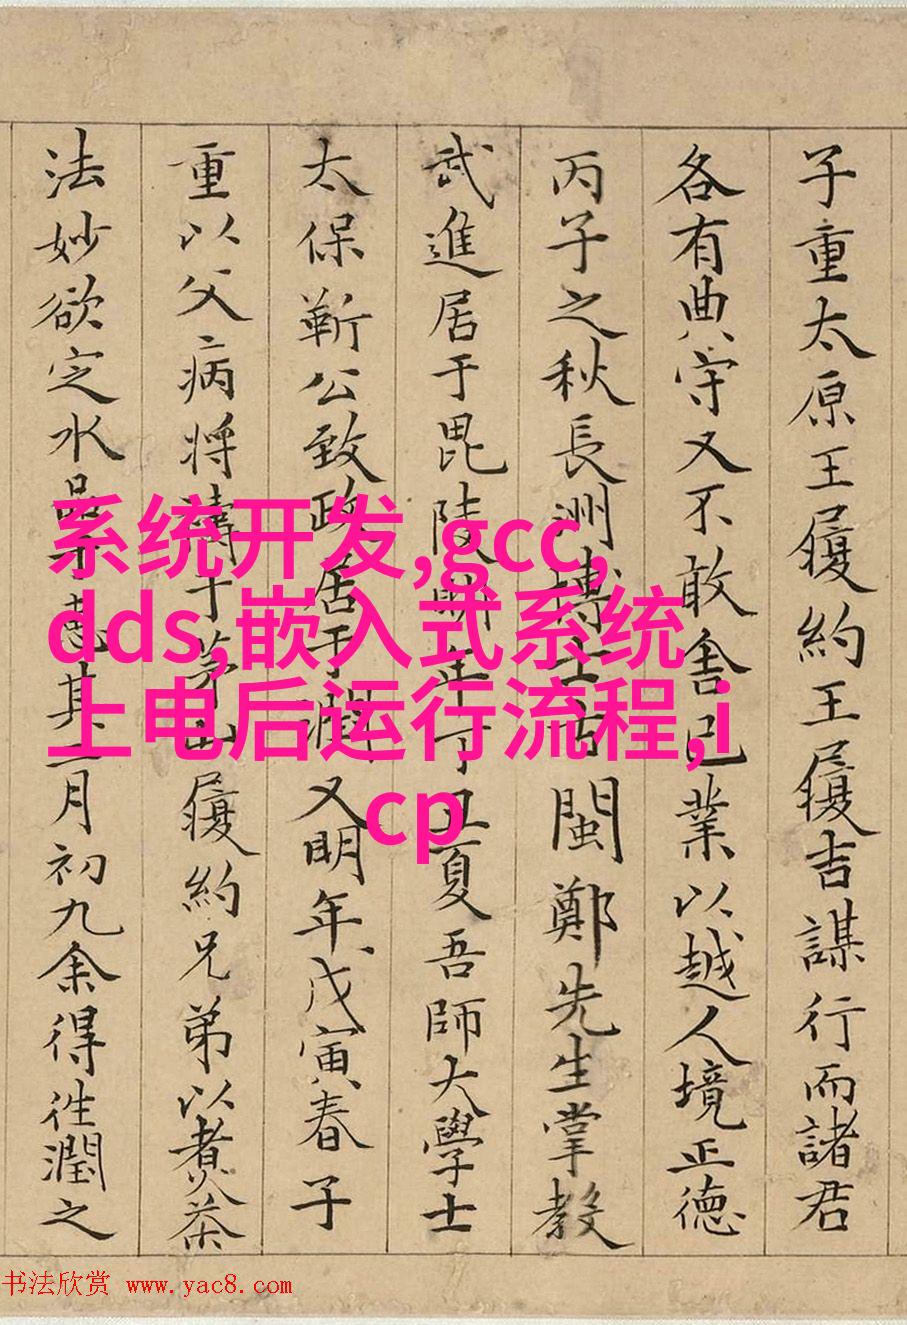 子重太原王履約王履吉謀行而諸君
各有典守又不敢舍己業以越人境正德
丙子之秋長洲博士古閩鄭先生掌教
武進居于毘陵明年丁丑夏吾師大學士
太保靳公致政居于潤又明年戊寅春子
重以父病将禱于茅山履約兄弟以煑茶
法妙欲定水品于惠其三月初九余得往潤之
系统开发,gcc,
dds,嵌入式系统
上电后运行流程,i
cp
书法欣赏 www.yac8.com